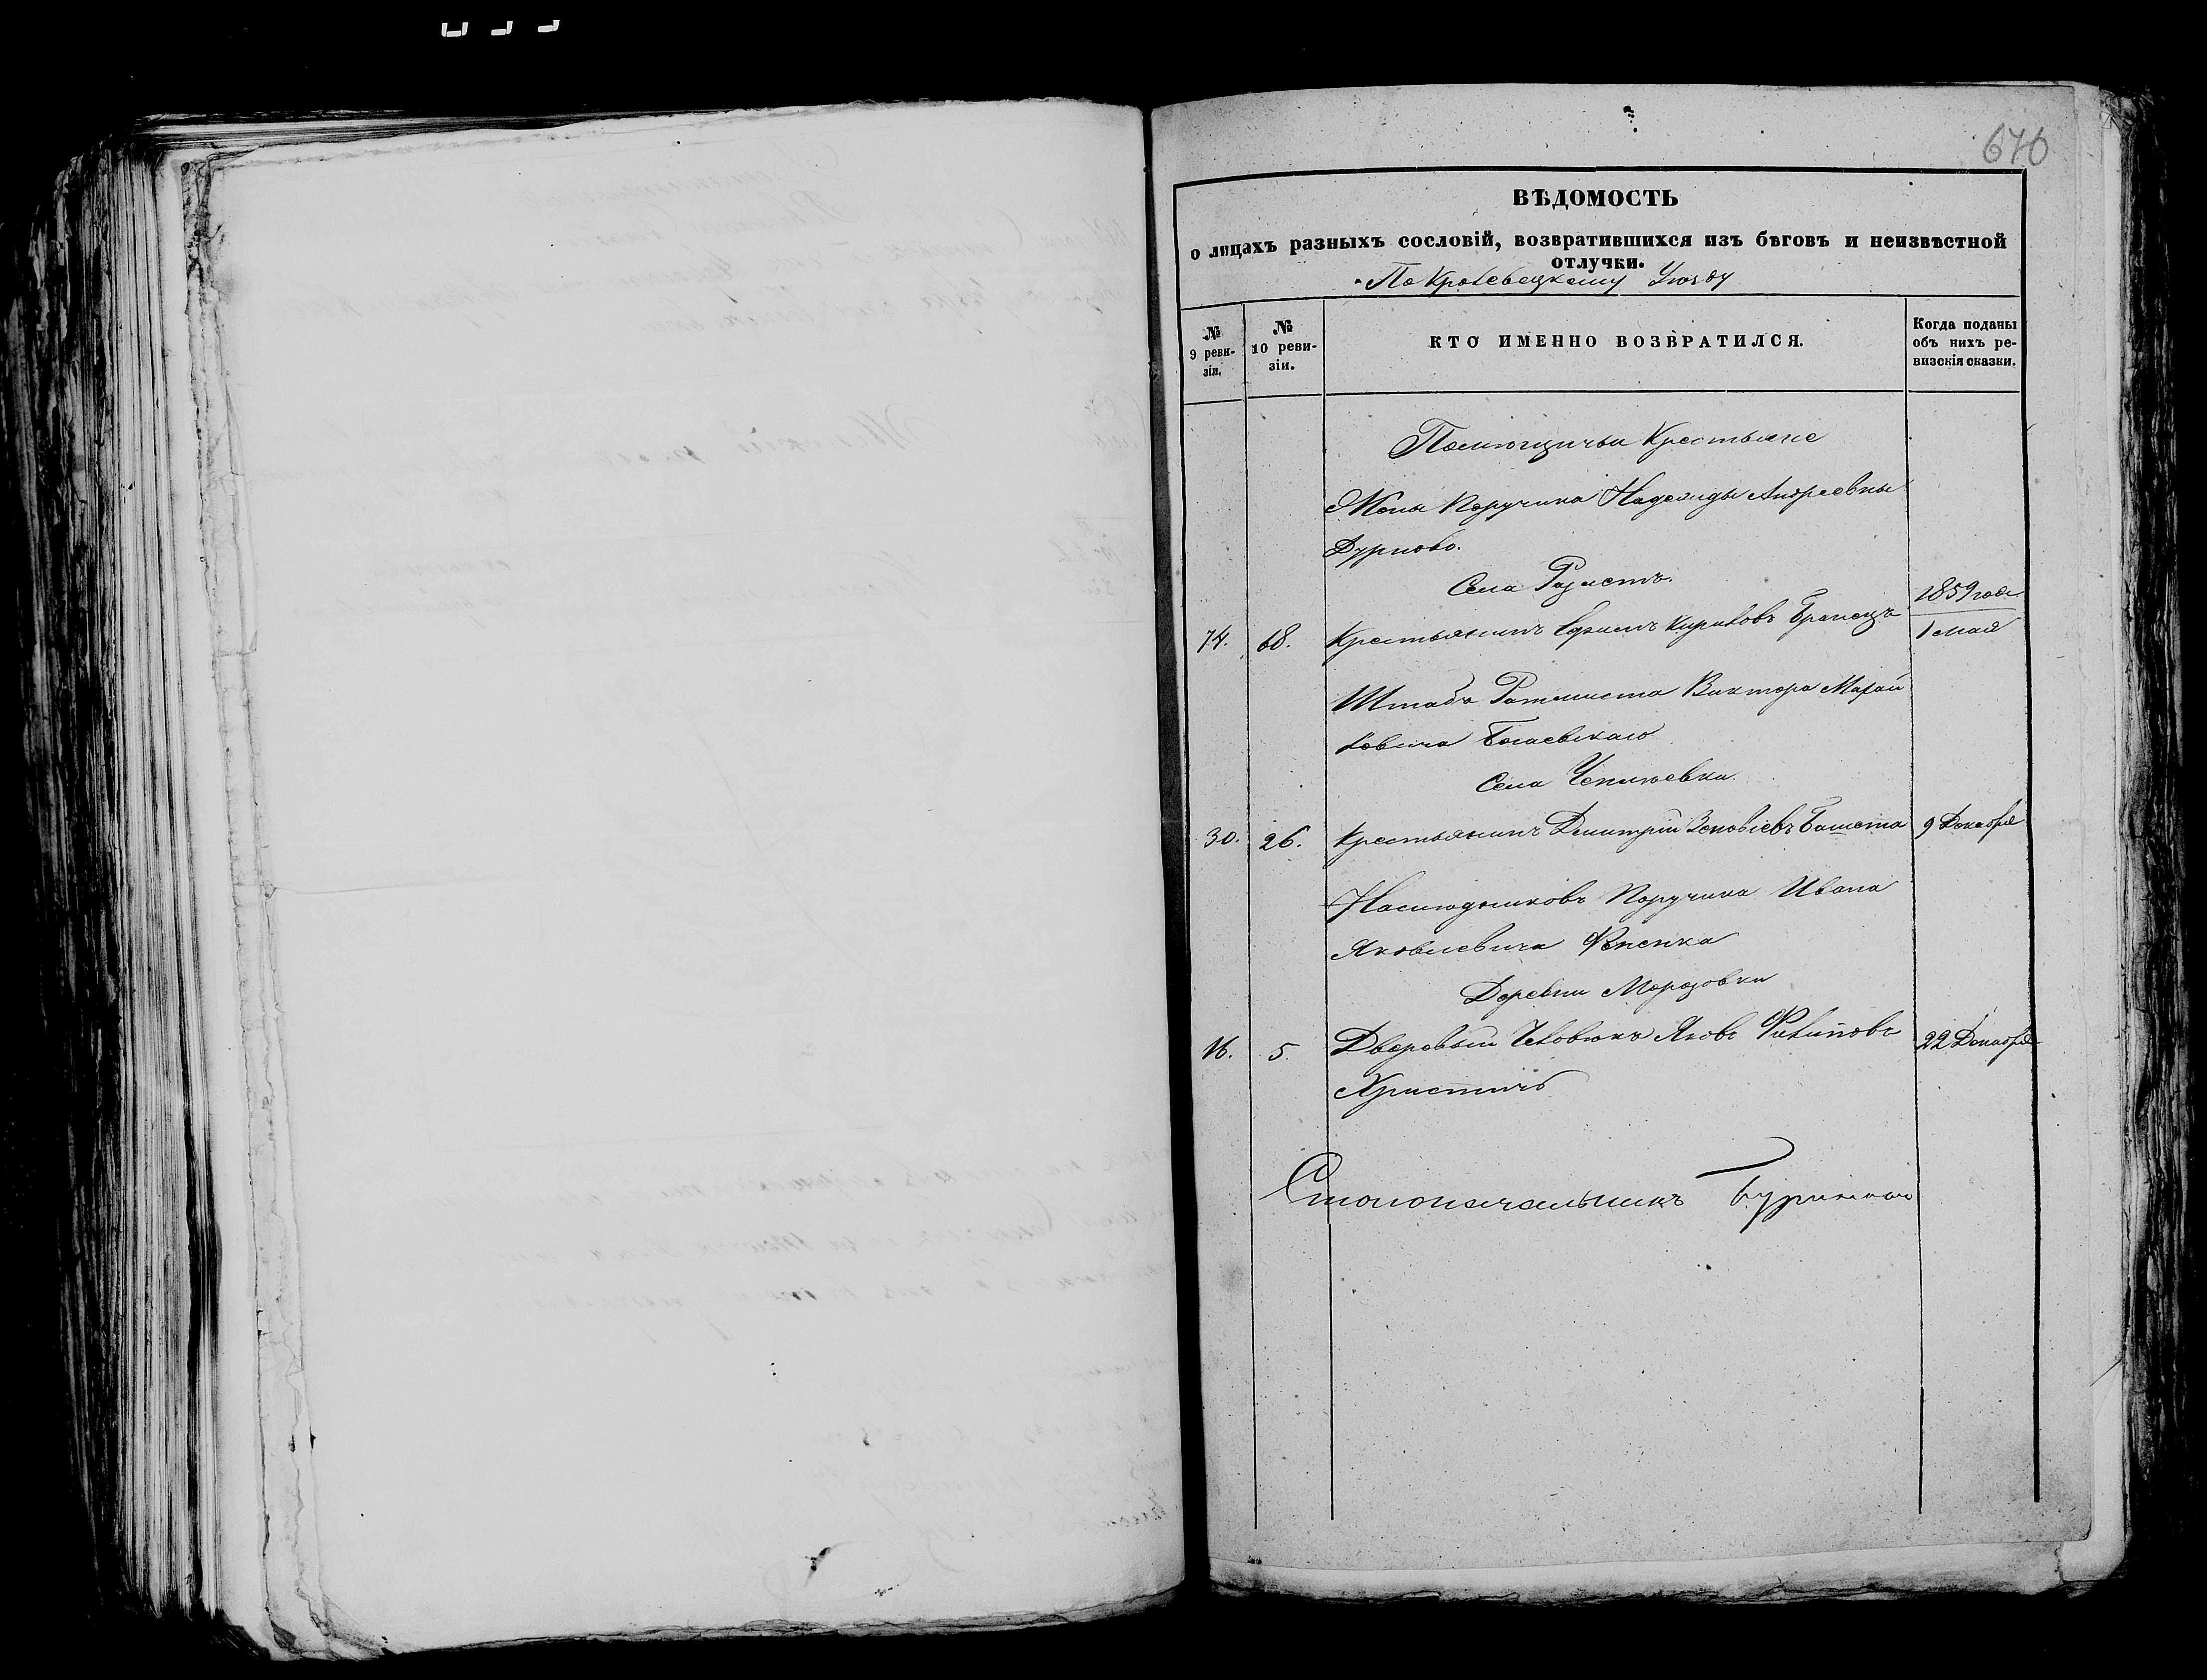 670
ВѢДОМОСТЬ
о лицахъ разныхъ сословій, возвратившихся изъ бѣговъ и неизвѣстной
отлучки.
По Кролевецкому Уѣзду
№ 9 ревизіи.
№ 10 ревизіи.
КТО ИМЕННО ВОЗВРАТИЛСЯ.
Когда поданы объ нихъ ревизскія сказки.
Помѣщичьи Крестьяне
Жены Поручика Надежды Андреевны
Дурново.
Села
1859 года
74. 68. Крестьянинъ Ефимъ Кириловъ 1 мая
Штабъ Ротмистра Виктора Михай
ловича
Села Чепліевки
30. 26. Крестьянинъ Димитрій Зеновіевъ 9 Декабря
Наслѣдниковъ Поручика Ивана
Яковлевича
Деревни Морозовки
16. 5. Дворовый Человѣкъ Яковъ Филиповъ 22 Декабря
Христичъ
Столоначальникъ